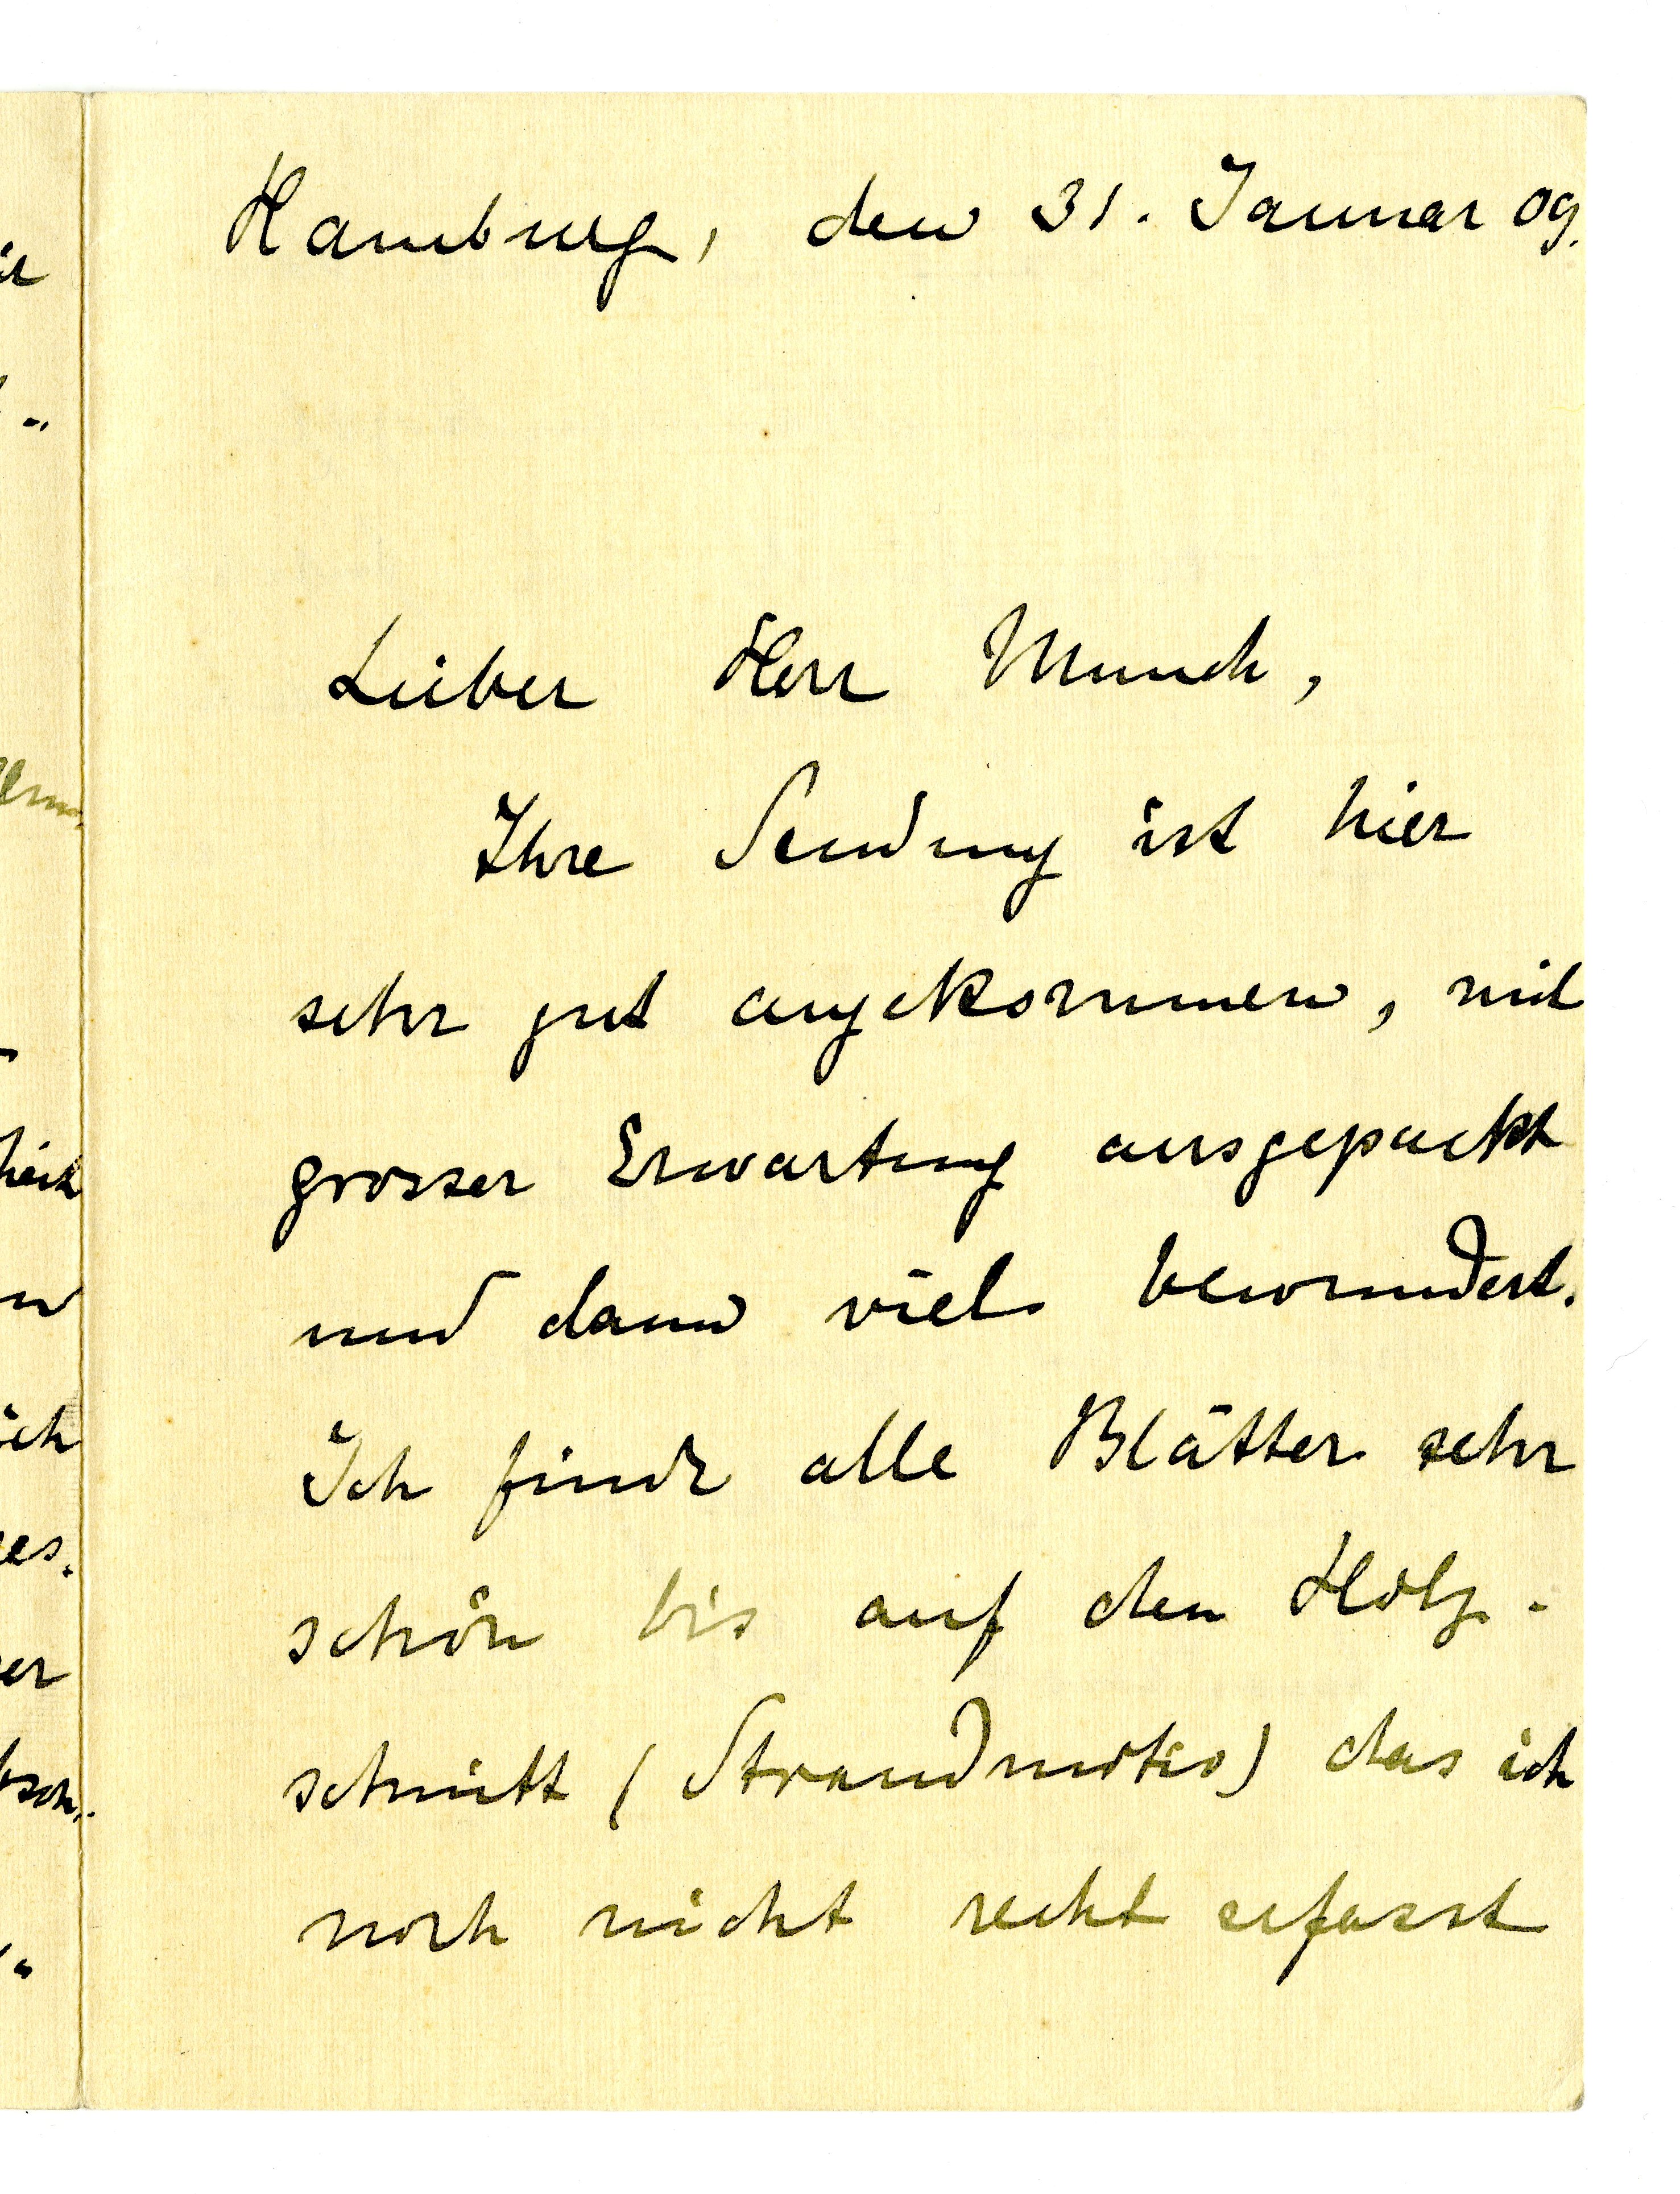 Hamburg, den 31. Januar 09.
Lieber Herr Munch,
Ihre Sendung ist hier
sehr gut angekommen, mit
grosser Erwartung ausgepackt
und dann viel bewundert.
Ich finde alle Blätter sehr
schön bis auf den Holz-
schnitt (Strandmotiv) das ich
noch nicht recht erfasst